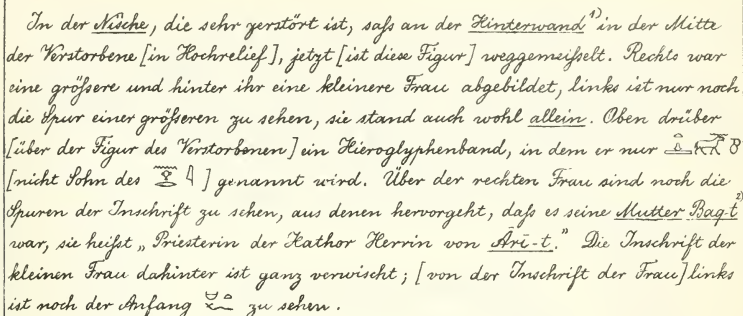 In der Nische, die sehr zerstört ist, saſs an der Hinterwand 1) in der Mitte
der Verstorbene [in Hochrelief], jetzt [ist diese Figur] weggemeiſselt. Rechts war
eine gröſsere und hinter ihr eine kleinere Frau abgebildet, links ist nur noch
die Spur einer gröſseren zu sehen, sie stand auch wohl allein. Oben drüber
[über der Figur des Verstorbenen] ein Hieroglyphenband, in dem er nur
[nicht Sohn des ] genannt wird. Über der rechten Frau sind noch die
Spuren der Inschrift zu sehen, aus denen hervorgeht, daſs es seine Mutter Baq-t 2)
war, sie heiſst „Priesterin der Hathor Herrin von Ārī-t.” Die Inschrift der
kleinen Frau dahinter ist ganz verwischt; [von der Inschrift der Frau] links
ist noch der Anfang zu sehen.